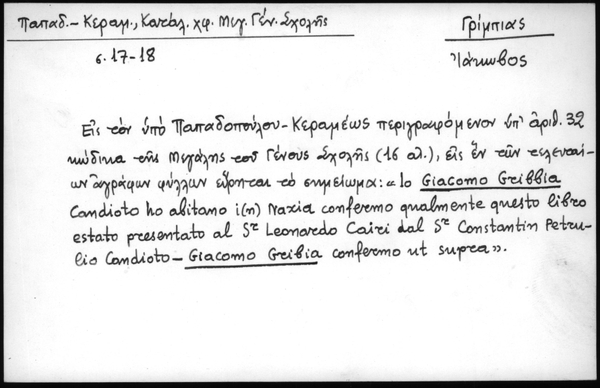 Παπαδ.-Κεραμ., Κατάλ. χφ. Μεγ. Γέν. Σχολῆς
Γρίμπιας
σ. 17-18
Ἰάκωβος
Εἰς τὸν ὑπὸ Παπαδοπούλου-Κεραμέως περιγραφόμενον ὑπ' ἀριθ. 32
κώδικα τῆς Μεγάλης τοῦ Γένους Σχολῆς (16 αἰ.), εἰς ἓν τῶν τελευταί-
ων ἀγράφων φύλλων εὕρηται τὸ σημείωμα: «Io Giacomo Gribbia
Candioto ho abitano i(n) Naxia confermo qualmente questo libro
estato presentato al Sr Leonardo Cairi dal Sr Constantin Petru-
lio Candioto – Giacomo Gribia confermo ut supra».